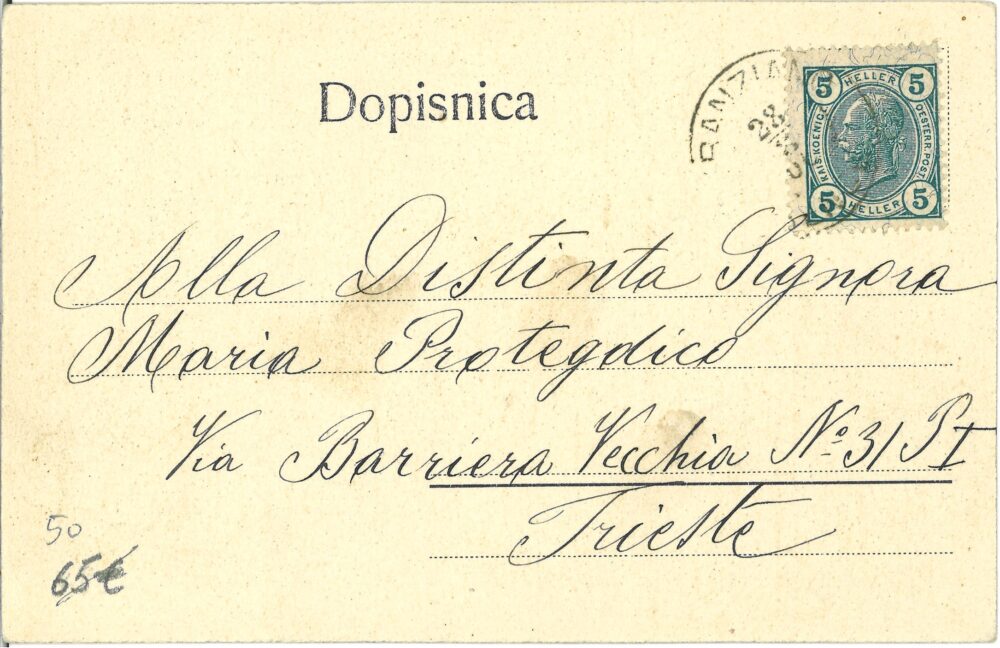 Dopisnica
RANZIAN
28
5 HELLER 5
KAIS. KOENIGL. OESTERR. POST.
5 HELLER 5
Alla Distinta Signora
Maria Protegdico
Via Barriera Vecchia No. 31 P I
Trieste
50
65€